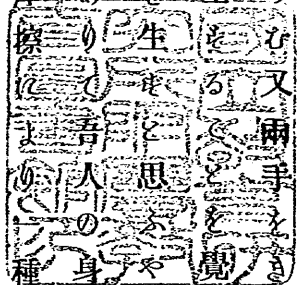 む又兩手を
ずることを覺
生ずと思ふや
りて吾人の身
擦により、種